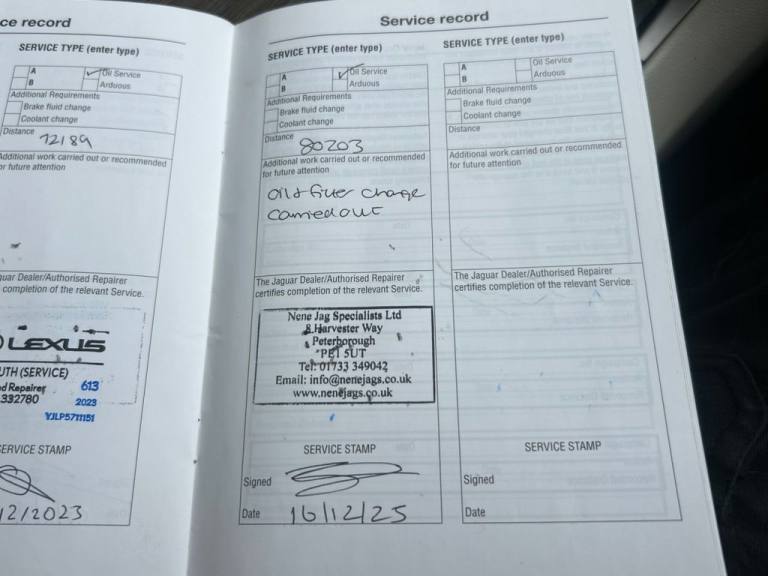 ce record
SERVICE TYPE (enter type)
A
Oil Service
B
Arduous
Additional Requirements
Brake fluid change
Coolant change
Distance
72189
Additional work carried out or recommended
or future attention
guar Dealer/Authorised Repairer
completion of the relevant Service.
LEXUS
UTH (SERVICE)
ed Repairer 613
332780 2023
YJLP5711151
SERVICE STAMP
12/2023
Service record
SERVICE TYPE (enter type)
A
Oil Service
B
Arduous
Additional Requirements
Brake fluid change
Coolant change
Distance
80203
Additional work carried out or recommended
for future attention
Oil & filter change
carried out
The Jaguar Dealer/Authorised Repairer
certifies completion of the relevant Service.
Nene Jag Specialists Ltd
8 Harvester Way
Peterborough
PE1 5UT
Tel: 01733 349042
Email: info@nenejags.co.uk
www.nenejags.co.uk
SERVICE STAMP
Signed
Date 16/12/25
SERVICE TYPE (enter type)
A
Oil Service
B
Arduous
Additional Requirements
Brake fluid change
Coolant change
Distance
Additional work carried out or recommended
for future attention
The Jaguar Dealer/Authorised Repairer
certifies completion of the relevant Service.
SERVICE STAMP
Signed
Date